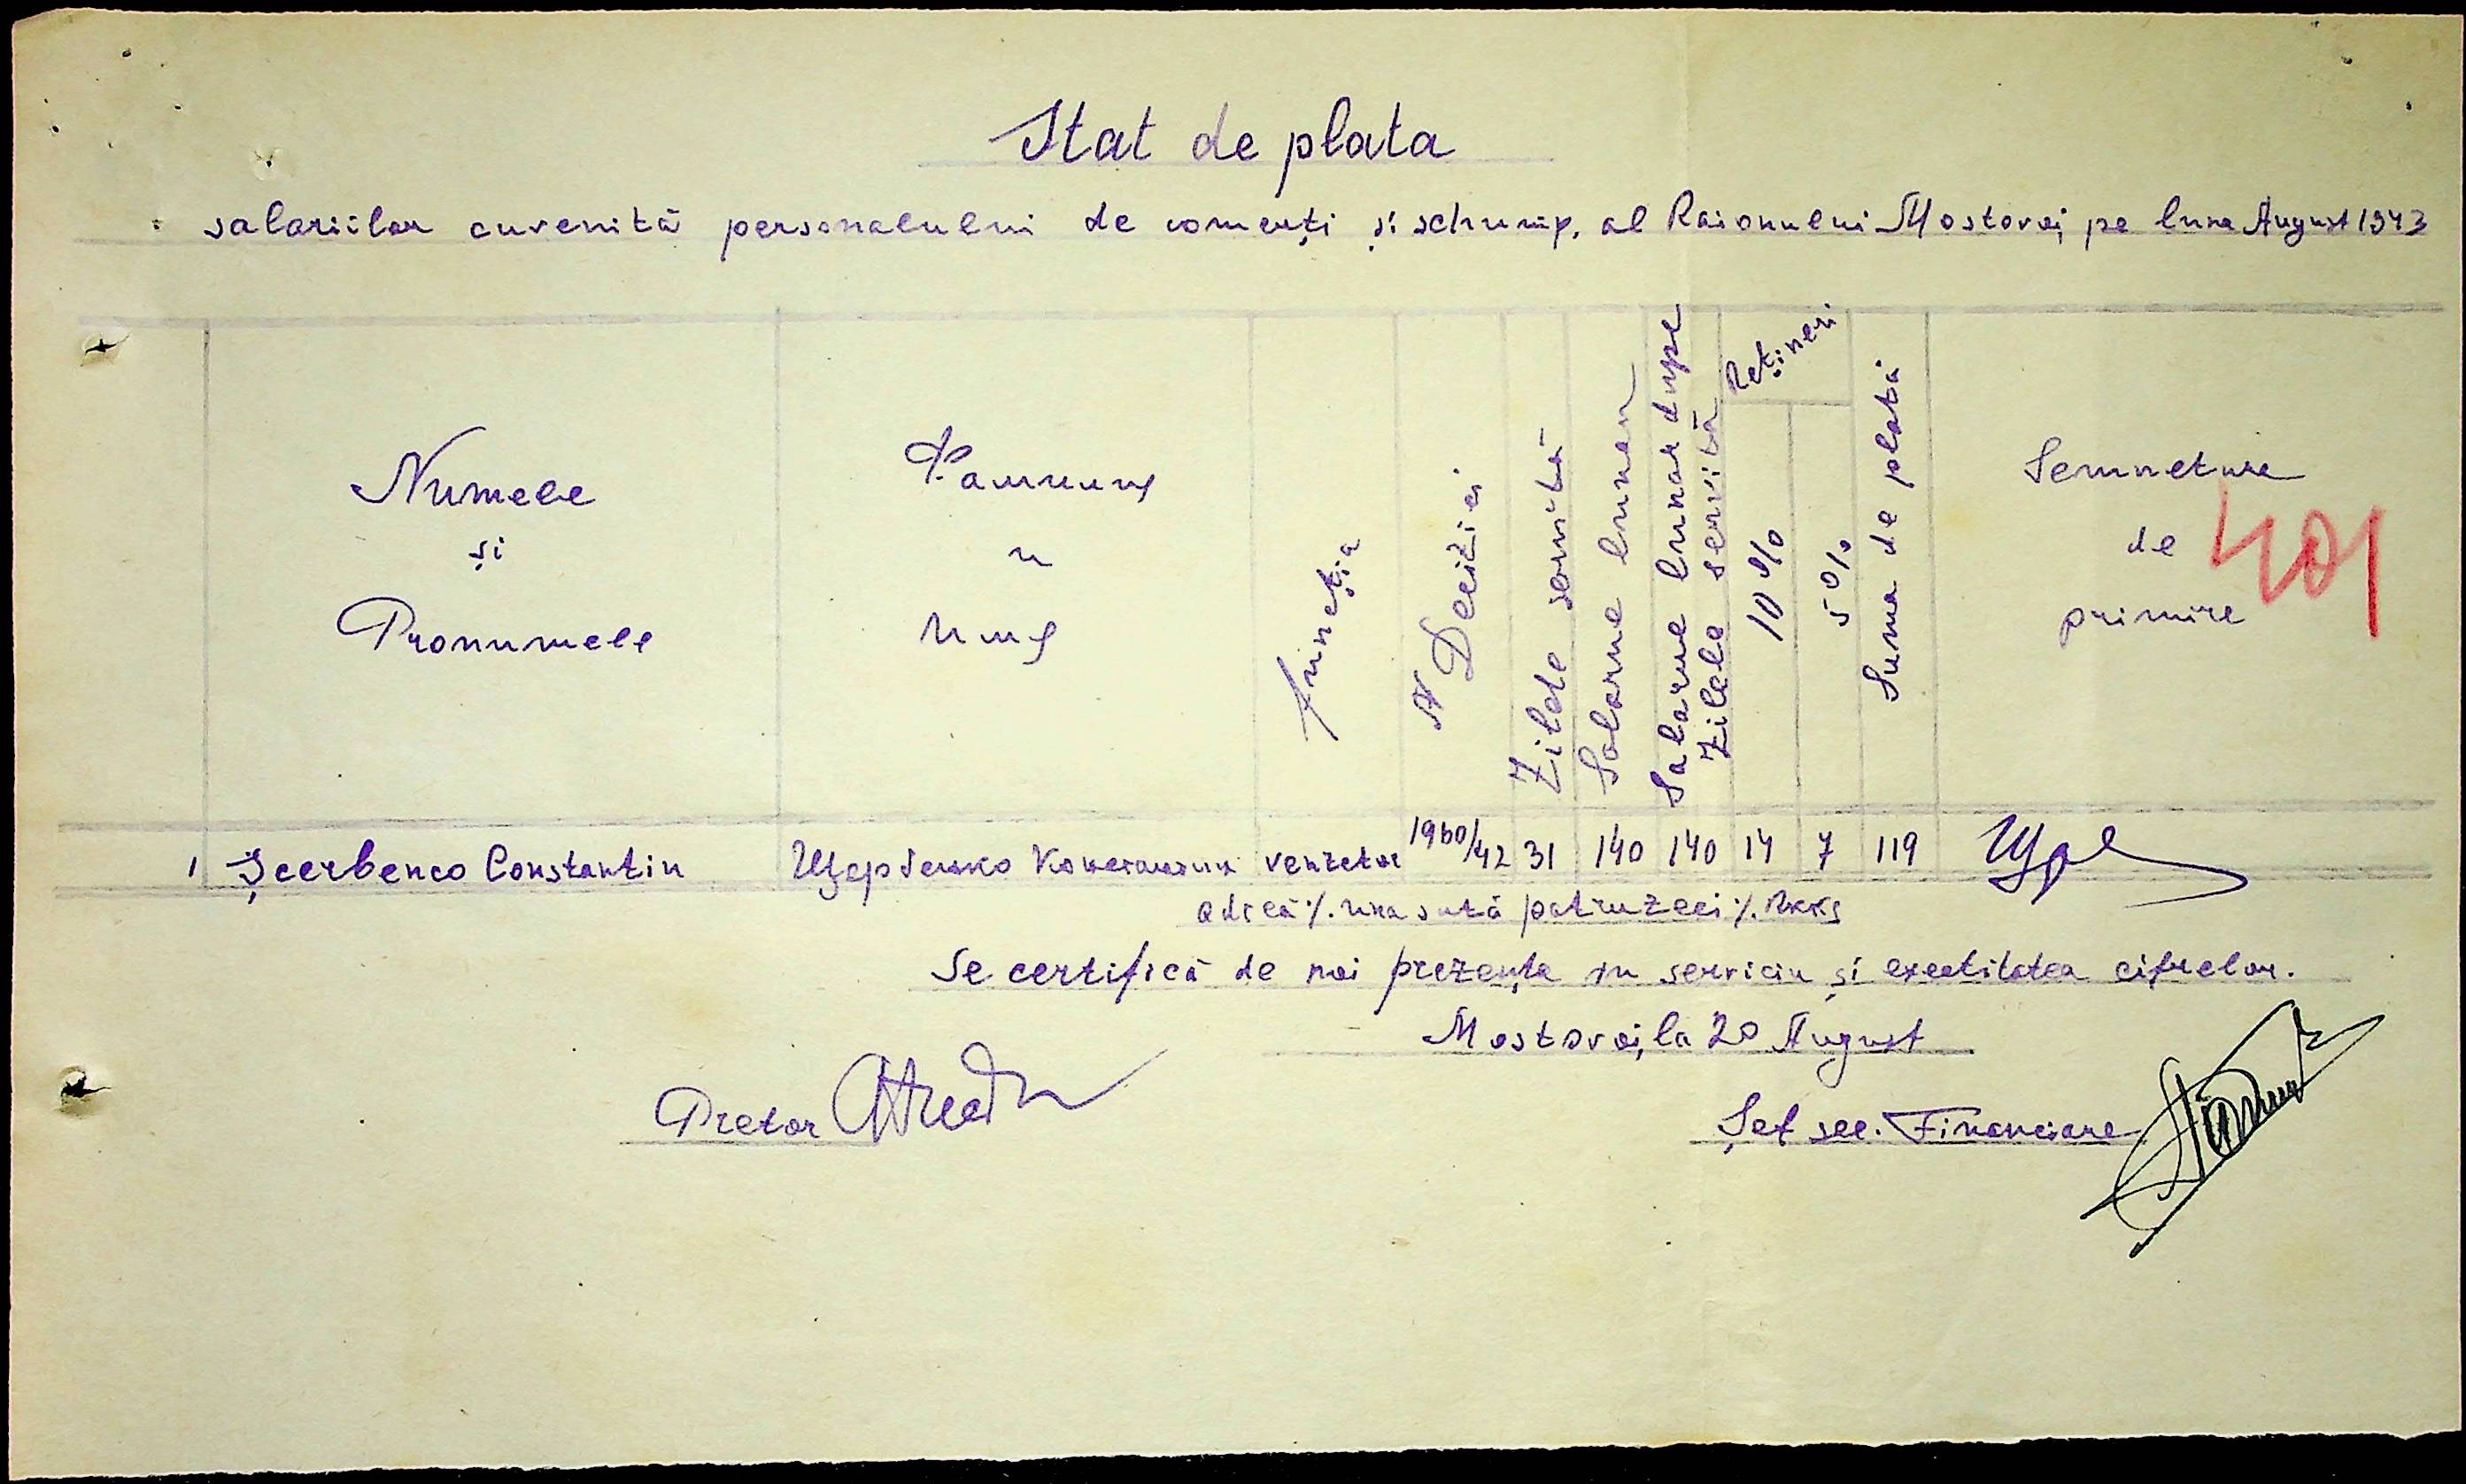 Stat de plata
salariilor cuvenită personalului de comerți și schimp. al Raionului Mostovoi pe luna August 1943
Numele
și
Pronumele
Фамилия
и
Имя
Funcția
N Deciziei
Zilele servită
Salarue lunar
Salarue lunar dupe
Zilele servită
Rețineri
10%
5%
Suma de plată
Semnetura
de
primire
401
1 Șcerbenco Constantin Щербенко Константин venzetor 1960/42 31 140 140 14 7 119
adică %. una sută patruzeci %. Rkks
Se certifică de noi prezența în serviciu și exectitatea cifrelor.
Mostovoi, la 20 August
Pretor
Șef sec. Financiare